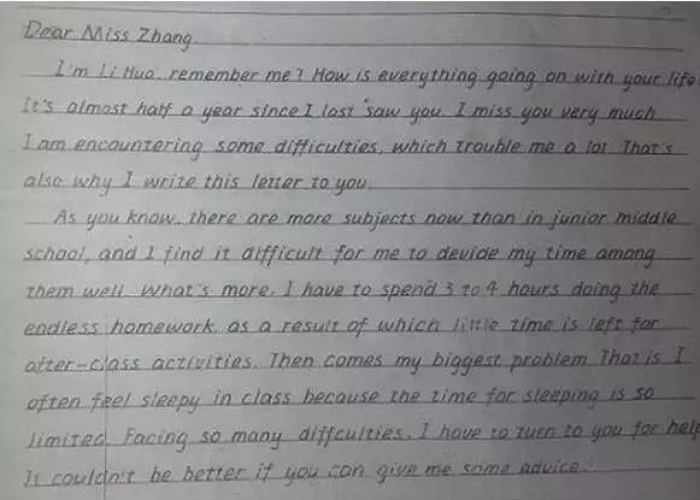 Dear Miss Zhang.
I'm Li Hua, remember me? How is everything going on with your life?
It's almost half a year since I last saw you. I miss you very much.
I am encountering some difficulties, which trouble me a lot. That's
also why I write this letter to you.
As you know, there are more subjects now than in junior middle
school, and I find it difficult for me to devide my time among
them well. What's more, I have to spend 3 to 4 hours doing the
endless homework, as a result of which little time is left for
after-class activities. Then comes my biggest problem. That is I
often feel sleepy in class because the time for sleeping is so
limited. Facing so many diffculties, I have to turn to you for help
It couldn't be better if you can give me some advice.